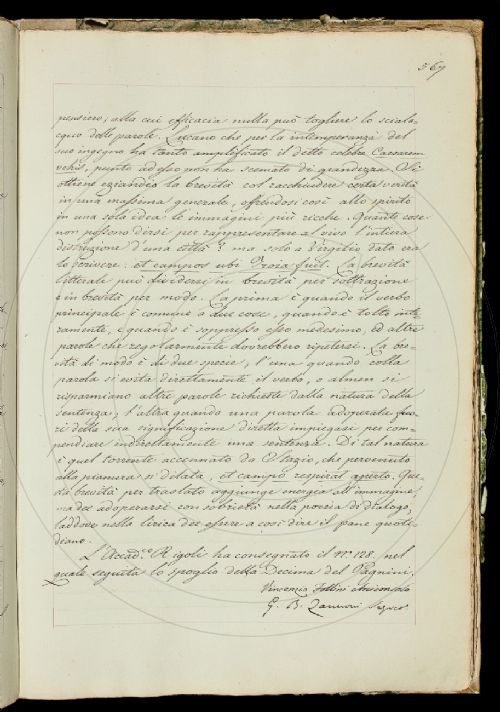 367
pensiero; alla cui efficacia nulla può togliere lo sciala-
cquo delle parole. Lucano che per la intemperanza del
suo ingegno ha tanto amplificato il detto celebre Caesarem
vehis, punto adesso non ha scemato di grandezza. Si
ottiene eziandio la brevità col racchiudere certa verità
in una massima generale, offrendosi così allo spirito
in una sola idea le immagini più ricche. Quante cose
non possono dirsi per rappresentare al vivo l'intiera
distruzione d'una città? ma solo a Virgilio dato era
lo scrivere: et campos ubi Troia fuit. La brevità
litterale può dividersi in brevità per sottrazione
e in brevità per modo. La prima è quando il verbo
principale è comune a due cose, quando è tolto inte-
ramente, e quando è soppresso esso medesimo, ed altre
parole che regolarmente dovrebbero ripetersi. La bre-
vità di modo è di due specie; l'una quando colla
parola si evita direttamente il verbo, o almen si
risparmiano altre parole richieste dalla natura della
sentenza; l'altra quando una parola adoperata fuo-
ri della sua significazione diretta impiegasi per com-
pendiare indirettamente una sentenza. Di tal natura
è quel torrente accennato da Stazio, che pervenuto
alla pianura si dilata, et campo respirat aperto. Que-
sta brevità per traslato aggiunge energia all'immagine,
ma dee adoperarsi con sobrietà nella poesia di dialogo,
laddove nella lirica dee essere a così dire il pane quoti-
diano.
L'Accad.co Rigoli ha consegnato il N.o 128. nel
quale seguita lo spoglio della Decima del Pagnini.
Vincenzio Follini Arciconsolo
G. B. Zannoni Segret.o